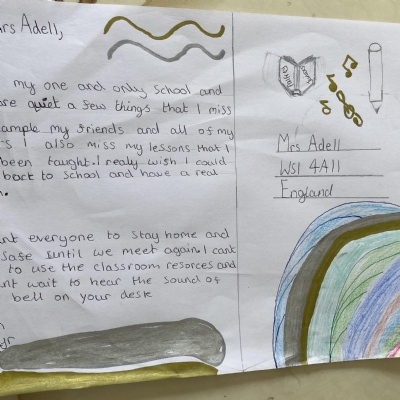 rs Adell,
my one and only school and
are quiet a few things that I miss
ample my friends and all of my
s I also miss my lessons that I
been taught. I realy wish I could
back to school and have a real
nt everyone to stay home and
safe suntil we meet again. I cant
to use the classroom resorces and
nt wait to hear the sound of
bell on your desk
Mrs Adell
WS1 4A11
England